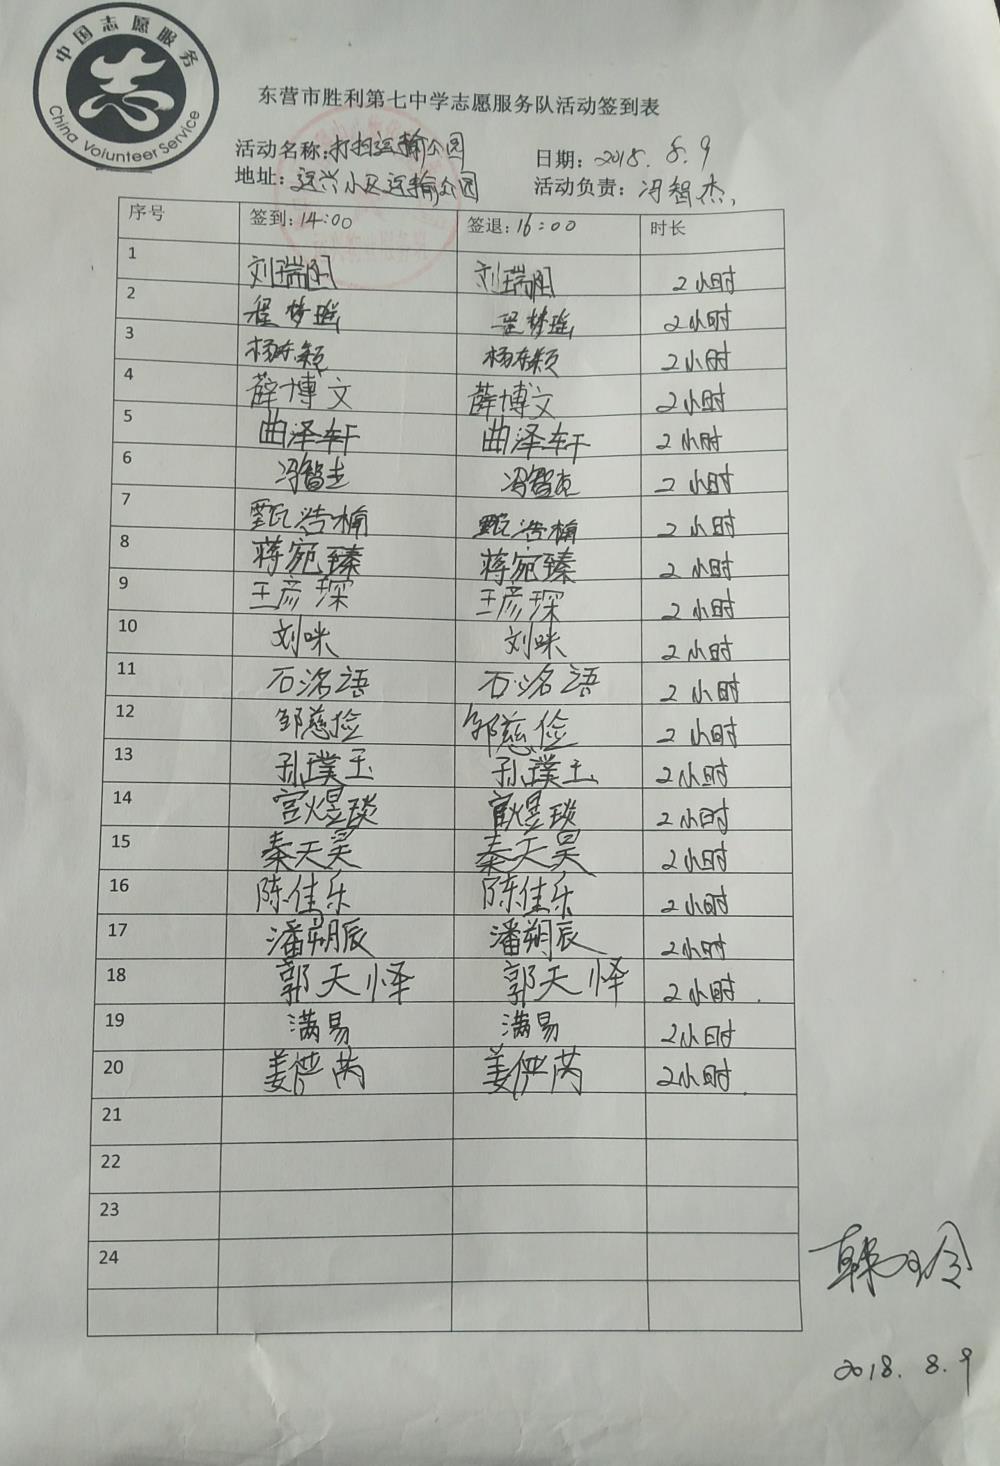 中国志愿服务
China Volunteer Service
东营市胜利第七中学志愿服务队活动签到表
活动名称:打扫运输公园 日期: 2018.8.9
地址: 运兴小区运输公园 活动负责: 冯智杰
序号 签到: 14:00 签退: 16:00 时长
1 刘瑞阳 刘瑞阳 2小时
2 程梦瑶 程梦瑶 2小时
3 杨东颖 杨东颖 2小时
4 薛博文 薛博文 2小时
5 曲泽轩 曲泽轩 2小时
6 冯智杰 冯智杰 2小时
7 甄浩楠 甄浩楠 2小时
8 蒋宛臻 蒋宛臻 2小时
9 王彦琛 王彦琛 2小时
10 刘咪 刘咪 2小时
11 石洺语 石洺语 2小时
12 邹慈俭 邹慈俭 2小时
13 孙璞玉 孙璞玉 2小时
14 宫煜琰 宫煜琰 2小时
15 秦天昊 秦天昊 2小时
16 陈佳乐 陈佳乐 2小时
17 潘朔辰 潘朔辰 2小时
18 郭天怿 郭天怿 2小时
19 满易 满易 2小时
20 姜俨芮 姜俨芮 2小时
21
22
23
24
韩玲
2018.8.9